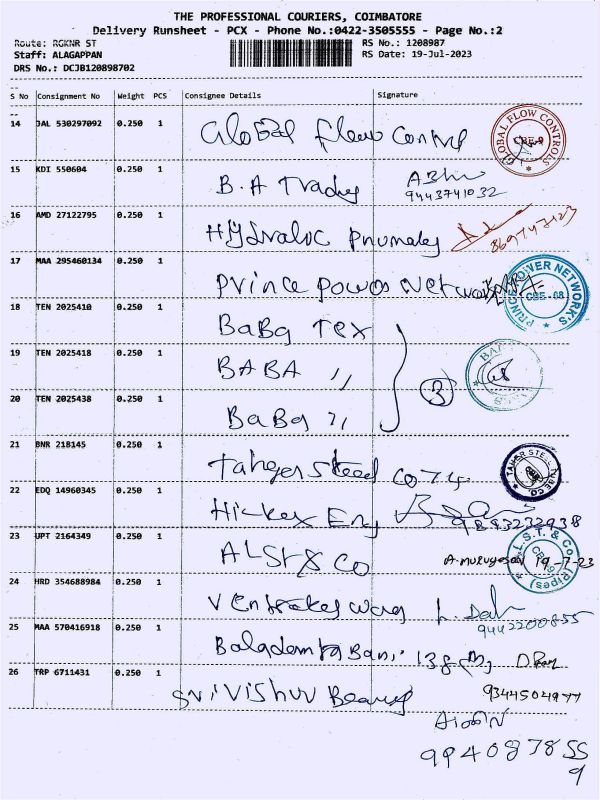 THE PROFESSIONAL COURIERS, COIMBATORE
Delivery Runsheet - PCX - Phone No.:0422-3505555 - Page No.:2
Route: RGKNR ST
RS No.: 1208987
Staff: ALAGAPPAN
RS Date: 19-Jul-2023
DRS No.: DCJB120898702
S No Consignment No Weight PCS Consignee Details Signature
14 JAL 530297092 0.250 1 Global Flow Control
GLOBAL FLOW CONTROLS
CBE-9
15 KDI 550604 0.250 1 B.A Trady
9443741032
16 AMD 27122795 0.250 1
17 MAA 295460134 0.250 1 Prince Power Network
PRINCE POWER NETWORK'S
CBE-68
18 TEN 2025410 0.250 1 BaBa Tex
19 TEN 2025418 0.250 1 BABA 〃
3
20 TEN 2025438 0.250 1 BaBa 〃
21 BNR 218145 0.250 1
22 EDQ 14960345 0.250 1 Hickex Eng
9843232938
23 UPT 2164349 0.250 1 A L S T & Co
A. Murugesan 19-7-23
L.S.T. & Co (Pipes)
24 HRD 354688984 0.250 1
9442200855
25 MAA 570416918 0.250 1
26 TRP 6711431 0.250 1 Sri Vishnu Bearing
9344504977
9940878559